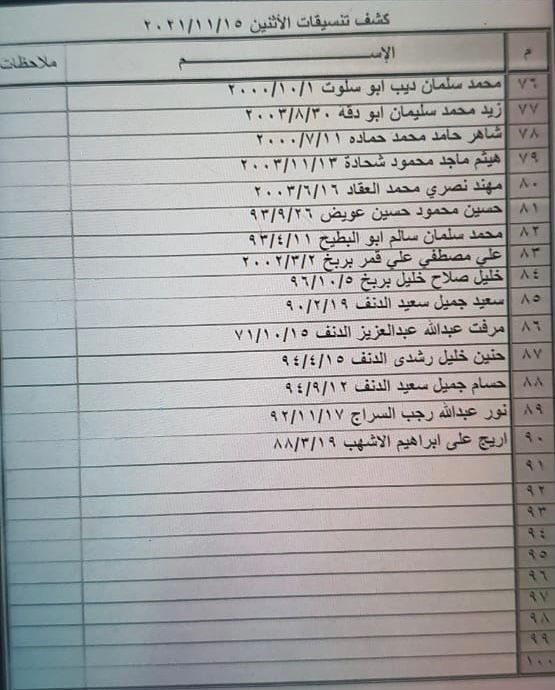 كشف تنسيقات الأثنين ٢٠٢١/١١/١٥
م الإســـــــم ملاحظات
٧٦ محمد سلمان ديب ابو سلوت ٢٠٠٠/١٠/١
٧٧ زيد محمد سليمان ابو دقة ٢٠٠٣/٨/٣٠
٧٨ شاهر حامد محمد حماده ٢٠٠٠/٧/١١
٧٩ هيثم ماجد محمود شحادة ٢٠٠٣/١١/١٣
٨٠ مهند نصري محمد العقاد ٢٠٠٣/٦/١٦
٨١ حسين محمود حسين عويض ٩٣/٩/٢٦
٨٢ محمد سلمان سالم ابو البطيخ ٩٣/٤/١١
٨٣ علي مصطفي علي قمر بربخ ٢٠٠٢/٣/٢
٨٤ خليل صلاح خليل بربخ ٩٦/١٠/٥
٨٥ سعيد جميل سعيد الدنف ٩٠/٢/١٩
٨٦ مرفت عبدالله عبدالعزيز الدنف ٧١/١٠/١٥
٨٧ حنين خليل رشدى الدنف ٩٤/٤/١٥
٨٨ حسام جميل سعيد الدنف ٩٤/٩/١٢
٨٩ نور عبدالله رجب السراج ٩٢/١١/١٧
٩٠ اريج على ابراهيم الاشهب ٨٨/٣/١٩
٩١
٩٢
٩٣
٩٤
٩٥
٩٦
٩٧
٩٨
٩٩
١٠٠